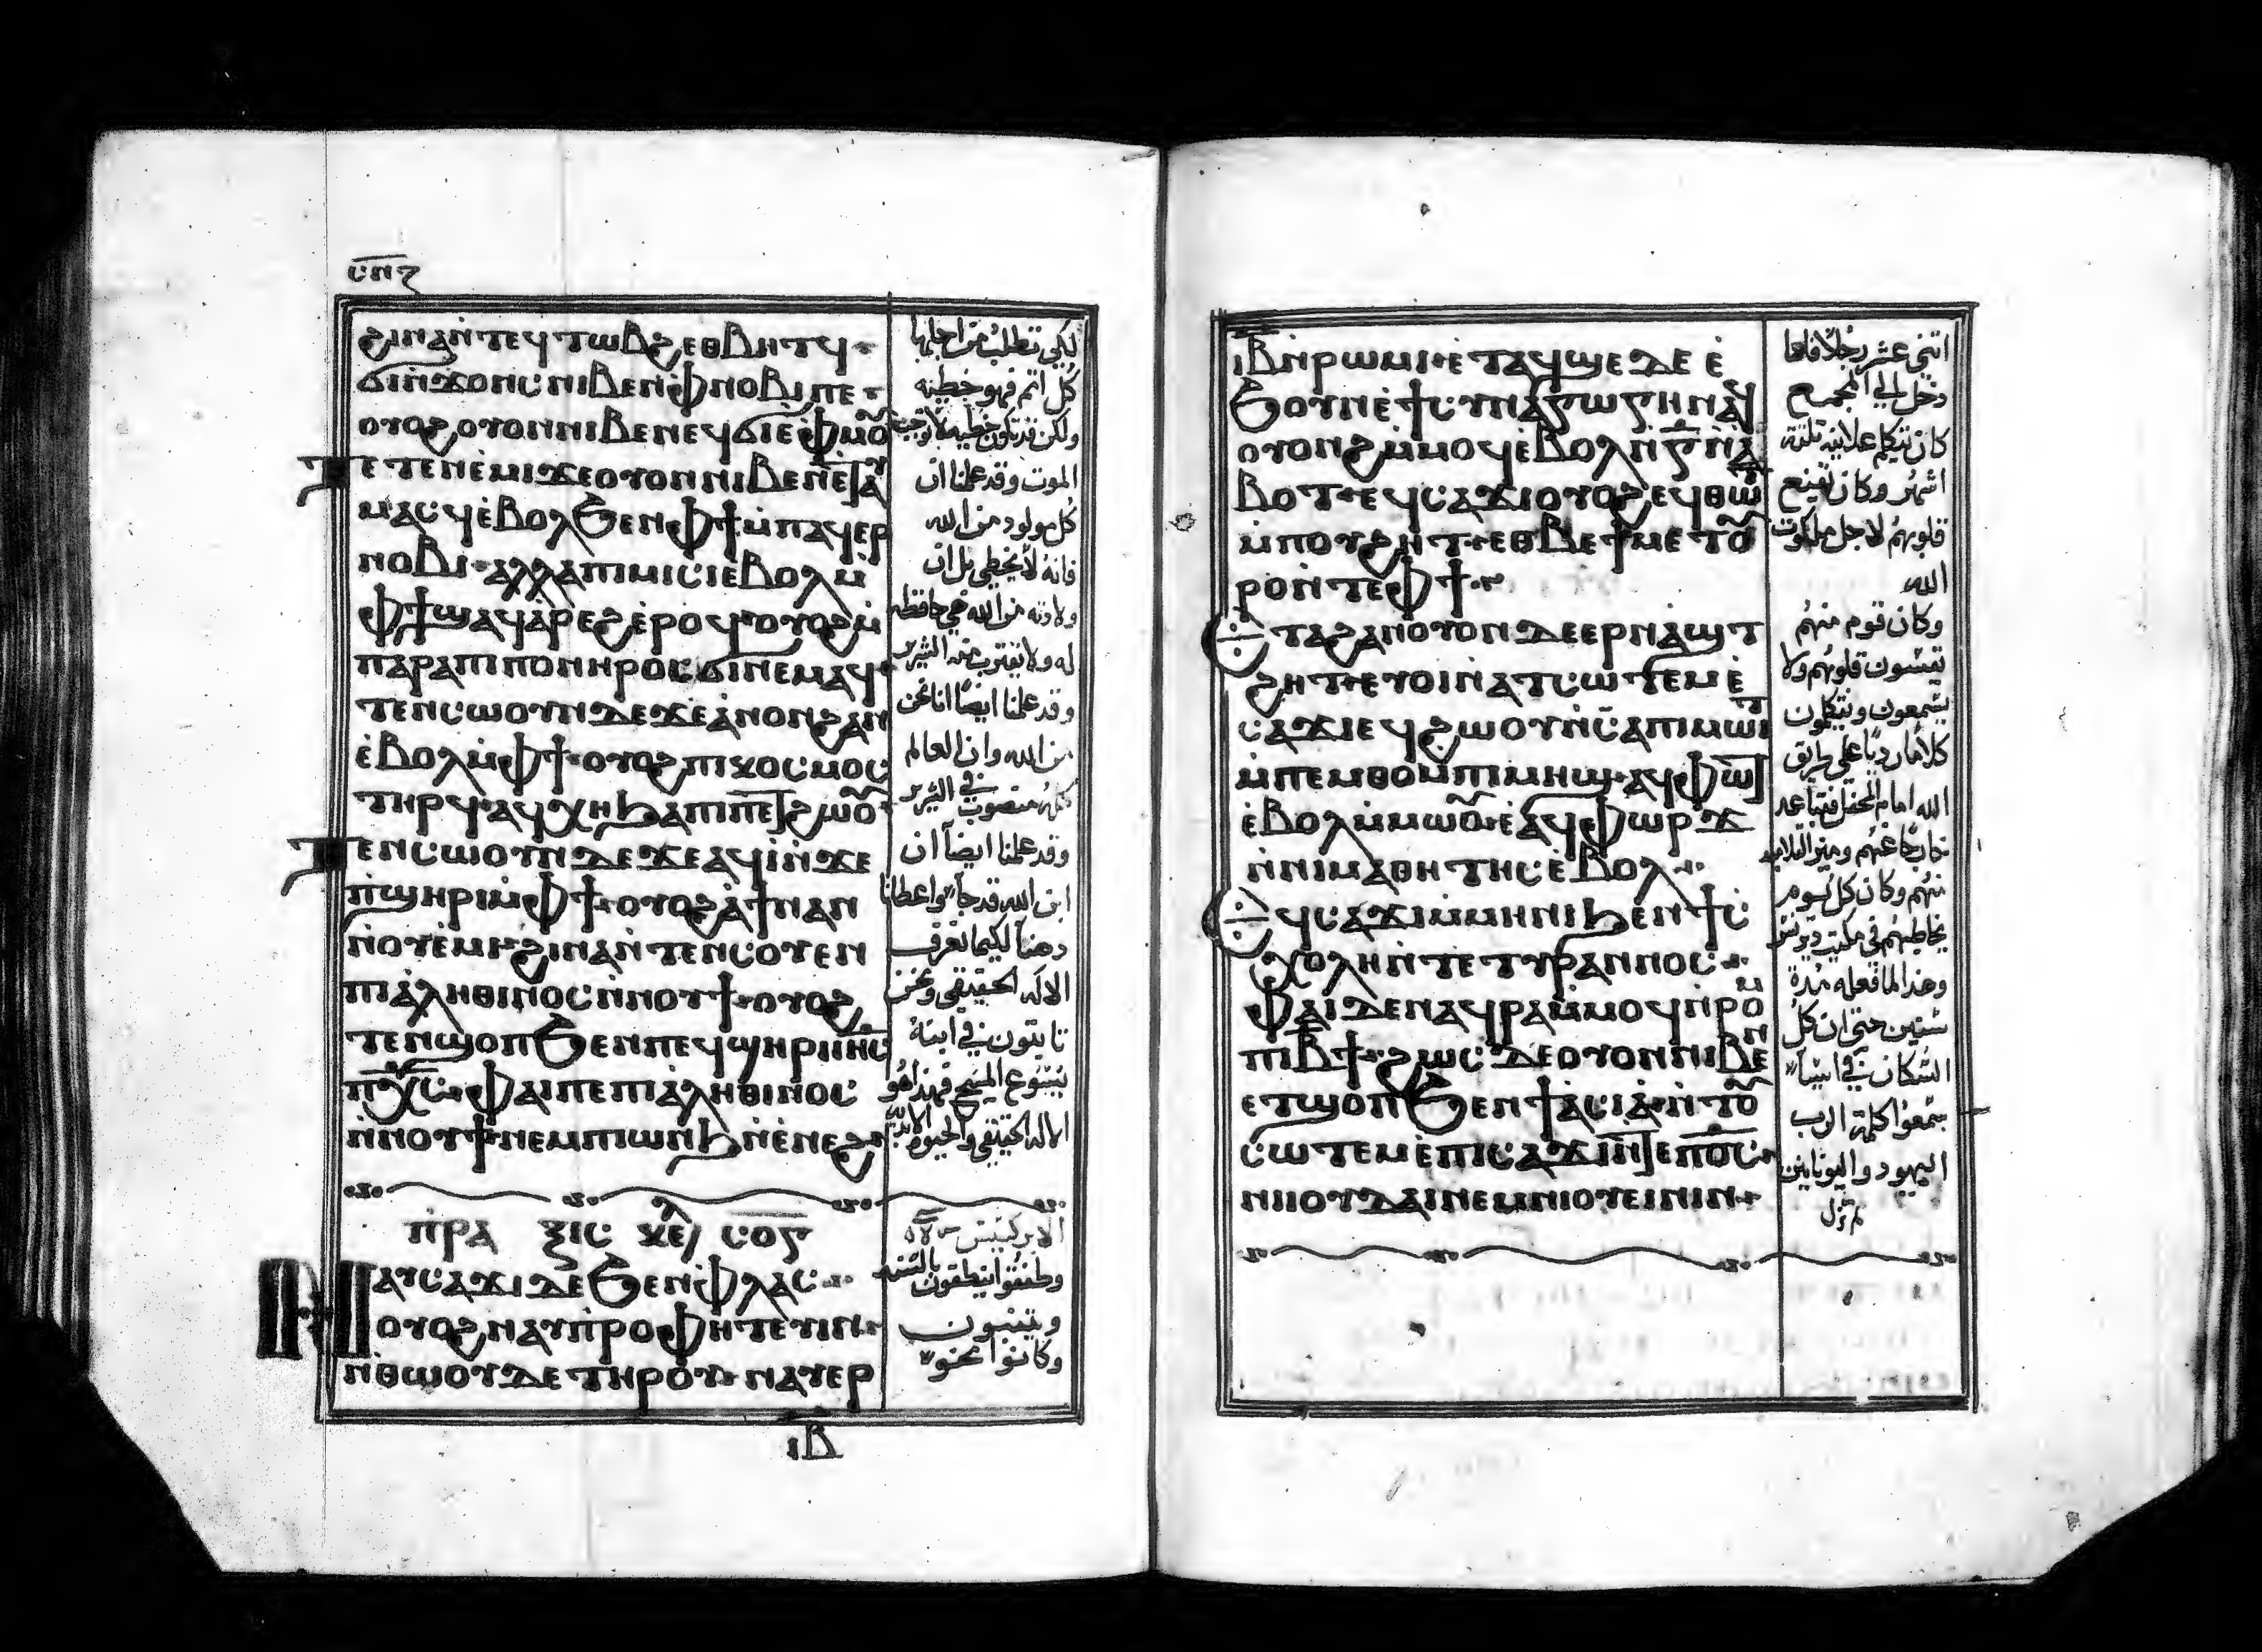 ⲥⲡⲍ
ϩⲓⲛⲁⲛ̇ⲧⲉϥⲧⲱⲃϩⲉⲑⲃⲏⲧϥ
ϭⲓⲛ̇ϫⲟⲛⲥⲛⲓⲃⲉⲛⲫⲛⲟⲃⲓⲡⲉ
ⲟⲩⲟϩⲟⲩⲟⲛⲛⲓⲃⲉⲛ
ⲧⲉⲧⲉⲛⲉ̇ⲙⲓϫⲉⲟⲩⲟⲛⲛⲓⲃⲉⲛⲉ̇ⲧⲁⲩ
ⲙⲁⲥϥⲉ̇ⲃⲟⲗϧⲉⲛⲫϯⲙ̇ⲡⲁϥⲉⲣ
ⲛⲟⲃⲓ ⲁⲗⲗⲁⲡⲓⲙⲓⲥⲓⲉ̇ⲃⲟⲗⲙ̇
ⲫϯϣⲁϥⲁ̇ⲣⲉϩⲉ̇ⲣⲟϥⲟⲩⲟϩⲙ̇
ⲡⲁⲣⲁⲡⲓⲡⲟⲛⲏⲣⲟⲥϭⲓⲛⲉⲙⲁϥ
ⲧⲉⲛⲥⲱⲟⲩⲛⲇⲉϫⲉⲁ̇ⲛⲟⲛϩⲁⲛ
ⲉ̇ⲃⲟⲗⲙ̇ⲫϯ ⲟⲩⲟϩⲡⲓⲕⲟⲥⲙⲟⲥ
ⲧⲏⲣϥⲁϥⲭⲏϧⲁⲡⲓⲡⲉⲧϩⲱⲟⲩ
ⲧⲉⲛⲥⲱⲟⲩⲛⲇⲉϫⲉⲁϥⲓ̇ⲛ̇ϫⲉ
ⲡ̇ϣⲏⲣⲓⲙ̇ⲫϯ ⲟⲩⲟϩⲁ̇ϯⲛⲁⲛ
ⲛ̇ⲟⲩⲉ̇ⲙⲓ ϩⲓⲛⲁⲛ̇ⲧⲉⲛⲥⲟⲩⲉⲛ
ⲡⲓⲁⲗⲏⲑⲓⲛⲟⲥⲛ̇ⲛⲟⲩϯ ⲟⲩⲟϩ
ⲧⲉⲛϣⲟⲡϧⲉⲛⲡⲉϥϣⲏⲣⲓⲓⲏⲥ
ⲡⲭⲥ ⲫⲁⲓⲡⲉⲡⲓⲁⲗⲏⲑⲓⲛⲟⲥ
ⲛ̇ⲛⲟⲩϯ ⲛⲉⲙⲡⲓⲱⲛϧⲛ̇ⲉ̇ⲛⲉϩ
ⲡⲣⲁ ⲝⲓⲥ ⲕⲉⲗ ⲥⲟⲋ
ⲛⲁⲩⲥⲁϫⲓⲇⲉϧⲉⲛⲫⲗⲁⲥ
ⲟⲩⲟϩⲛⲁⲩⲡ̇ⲣⲟⲫⲏⲧⲉⲩⲓⲛ
ⲛ̇ⲑⲱⲟⲩⲇⲉⲧⲏⲣⲟⲩ ⲛⲁⲩⲉⲣ
ⲓⲃ
لكي تطلب من اجلها
كل اثم فهو خطيئه
ولكن قد تكون خطيه لا توجب
الموت وقد علمنا ان
كل مولود من الله
فانه لا يخطي بل ان
ولادته من الله هي حافظه
له ولا يقترب منه الشرير
وقد علمنا ايضا اننا نحن
من الله وان العالم
كله منصوب في الشرير
وقد علمنا ايضا ان
ابن الله قد جا واعطانا
ذهنا لكيما نعرف
الاله الحقيقي ونحن
ثابتون في ابنه
يسوع المسيح فهذا هو
الاله الحقيقي والحيوه الابديه
الابركسيس
وطفقوا ينطقون بالسنه
ويتنبون
وكانوا نحو
ⲓⲃⲛ̇ⲣⲱⲙⲓ ⲉ̇ⲧⲁϥϣⲉⲇⲉⲉ̇
ϧⲟⲩⲛⲉ̇ϯⲥⲩⲛⲁⲅⲱⲅⲏⲛⲁϥ
ⲟⲩⲟⲛϩⲙ̇ⲙⲟϥⲉ̇ⲃⲟⲗⲛ̇ⲅⲛ̇ⲁ̇
ⲃⲟⲧ ⲉϥⲥⲁϫⲓⲟⲩⲟϩⲉϥⲑⲱⲧ
ⲙ̇ⲡⲟⲩϩⲏⲧ ⲉⲑⲃⲉϯⲙⲉⲧⲟⲩ
ⲣⲟⲛ̇ⲧⲉⲫϯ
ⲉⲧⲁϩⲁⲛⲟⲩⲟⲛⲇⲉⲉⲣⲛⲁϣⲧ
ϩⲏⲧ ⲉⲩⲟⲓⲛ̇ⲁⲧⲥⲱⲧⲉⲙⲉ̇
ⲥⲁϫⲓⲉϥϩⲱⲟⲩⲛ̇ⲥⲁⲡⲓⲙⲱⲓⲧ
ⲙ̇ⲡⲉⲙⲑⲟⲙ̇ⲡⲓⲙⲏϣ ⲁϥⲫⲱⲧ
ⲉ̇ⲃⲟⲗⲙ̇ⲙⲱⲟⲩ ⲉ̇ⲁϥⲫⲱⲣϫ
ⲛ̇ⲛⲓⲙⲁⲑⲏⲧⲏⲥⲉ̇ⲃⲟⲗ
ⲉϥⲥⲁϫⲓⲙ̇ⲙⲏⲛⲓϧⲉⲛϯⲥ
ⲭⲟⲗⲏⲛ̇ⲧⲉⲧⲩⲣⲁⲛⲛⲟⲥ
ⲫⲁⲓⲇⲉⲛⲁϥⲣⲁⲙ̇ⲙⲟϥⲛ̇ⲣⲟⲙ
ⲡⲓⲃ̅ϯ ϩⲱⲥⲇⲉⲟⲩⲟⲛⲛⲓⲃⲉⲛ
ⲉⲧϣⲟⲡϧⲉⲛϯⲁⲥⲓⲁ ⲛ̇ⲧⲟⲩ
ⲥⲱⲧⲉⲙⲉ̇ⲡⲓⲥⲁϫⲓⲛ̇ⲧⲉⲡⲟ̅ⲥ̅
ⲛⲓⲓⲟⲩⲇⲁⲓⲛⲉⲙⲛⲓⲟⲩⲉⲓⲛⲓⲛ
اثني عشر رجلا فلما
دخل الي المجمع
كان يتكلم علانيه ثلثة
اشهر وكان يقنع
قلوبهم لاجل ملكوت
الله
وكان قوم منهم
تقسون قلوبهم ولا
يسمعون ويتكلمون
كلاما رديا علي طريق
الله امام المحفل فتباعد
عنهم وميز التلاميذ
منهم وكان كل يوم
يخاطبهم في مكتب
وهذا لما فعله مدة
سنتين حتي ان كل
السكان في اسيا
يسمعوا كلمة الرب
اليهود واليونانيين
لم تزل